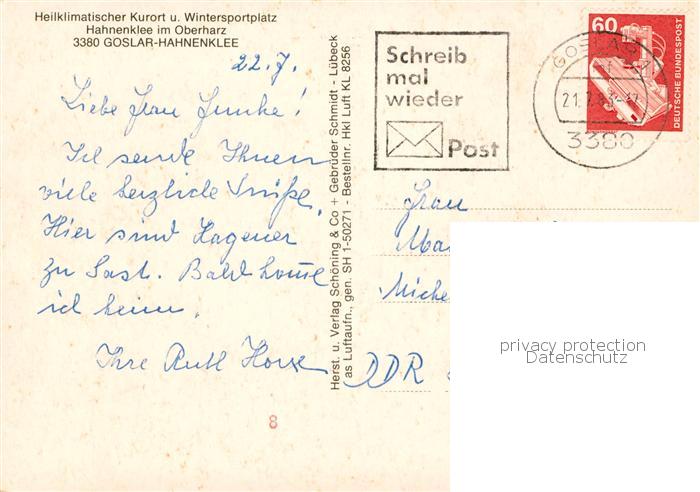 Heilklimatischer Kurort u. Wintersportplatz
Hahnenklee im Oberharz
3380 GOSLAR-HAHNENKLEE
22.7.
Liebe Frau
Ich sende Ihnen
viele herzliche Grüße.
Hier sind Hagener
zu Gast. Bald komme
ich heim.
Ihre Ruth
8
Herst. u. Verlag Schöning & Co + Gebrüder Schmidt - Lübeck
as Luftaufn., gen. SH 1-50271 - Bestellnr. HKl Luft KL 8256
Schreib
mal
wieder
Post
GOSLAR
21.7.
3380
60
DEUTSCHE BUNDESPOST
Frau
DDR
privacy protection
Datenschutz